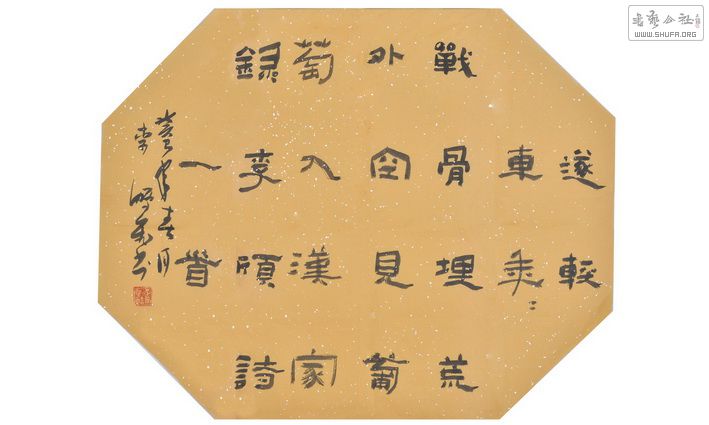 遂輕
車年々
戰骨埋荒
外空見葡
萄入漢家
錄李頎詩
一首
年春月
書
書藝公社
WWW.SHUFA.ORG